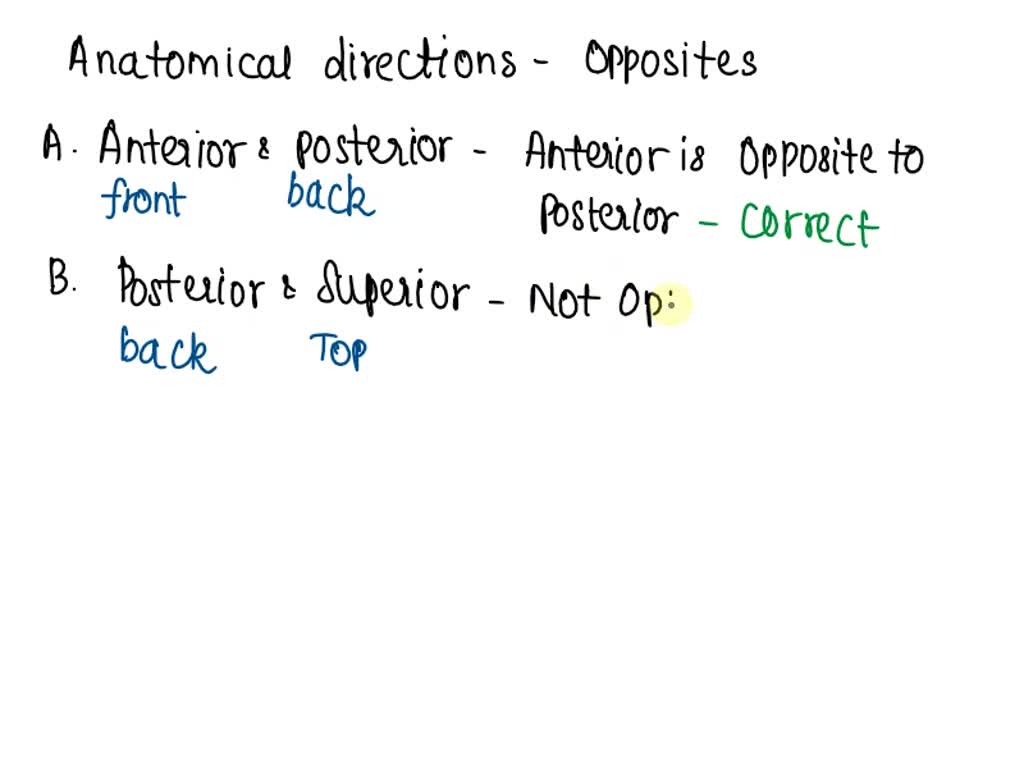 Anatomical directions - Opposites
A. Anterior & Posterior - Anterior is opposite to
front back Posterior - Correct
B. Posterior & Superior - Not Op
back Top